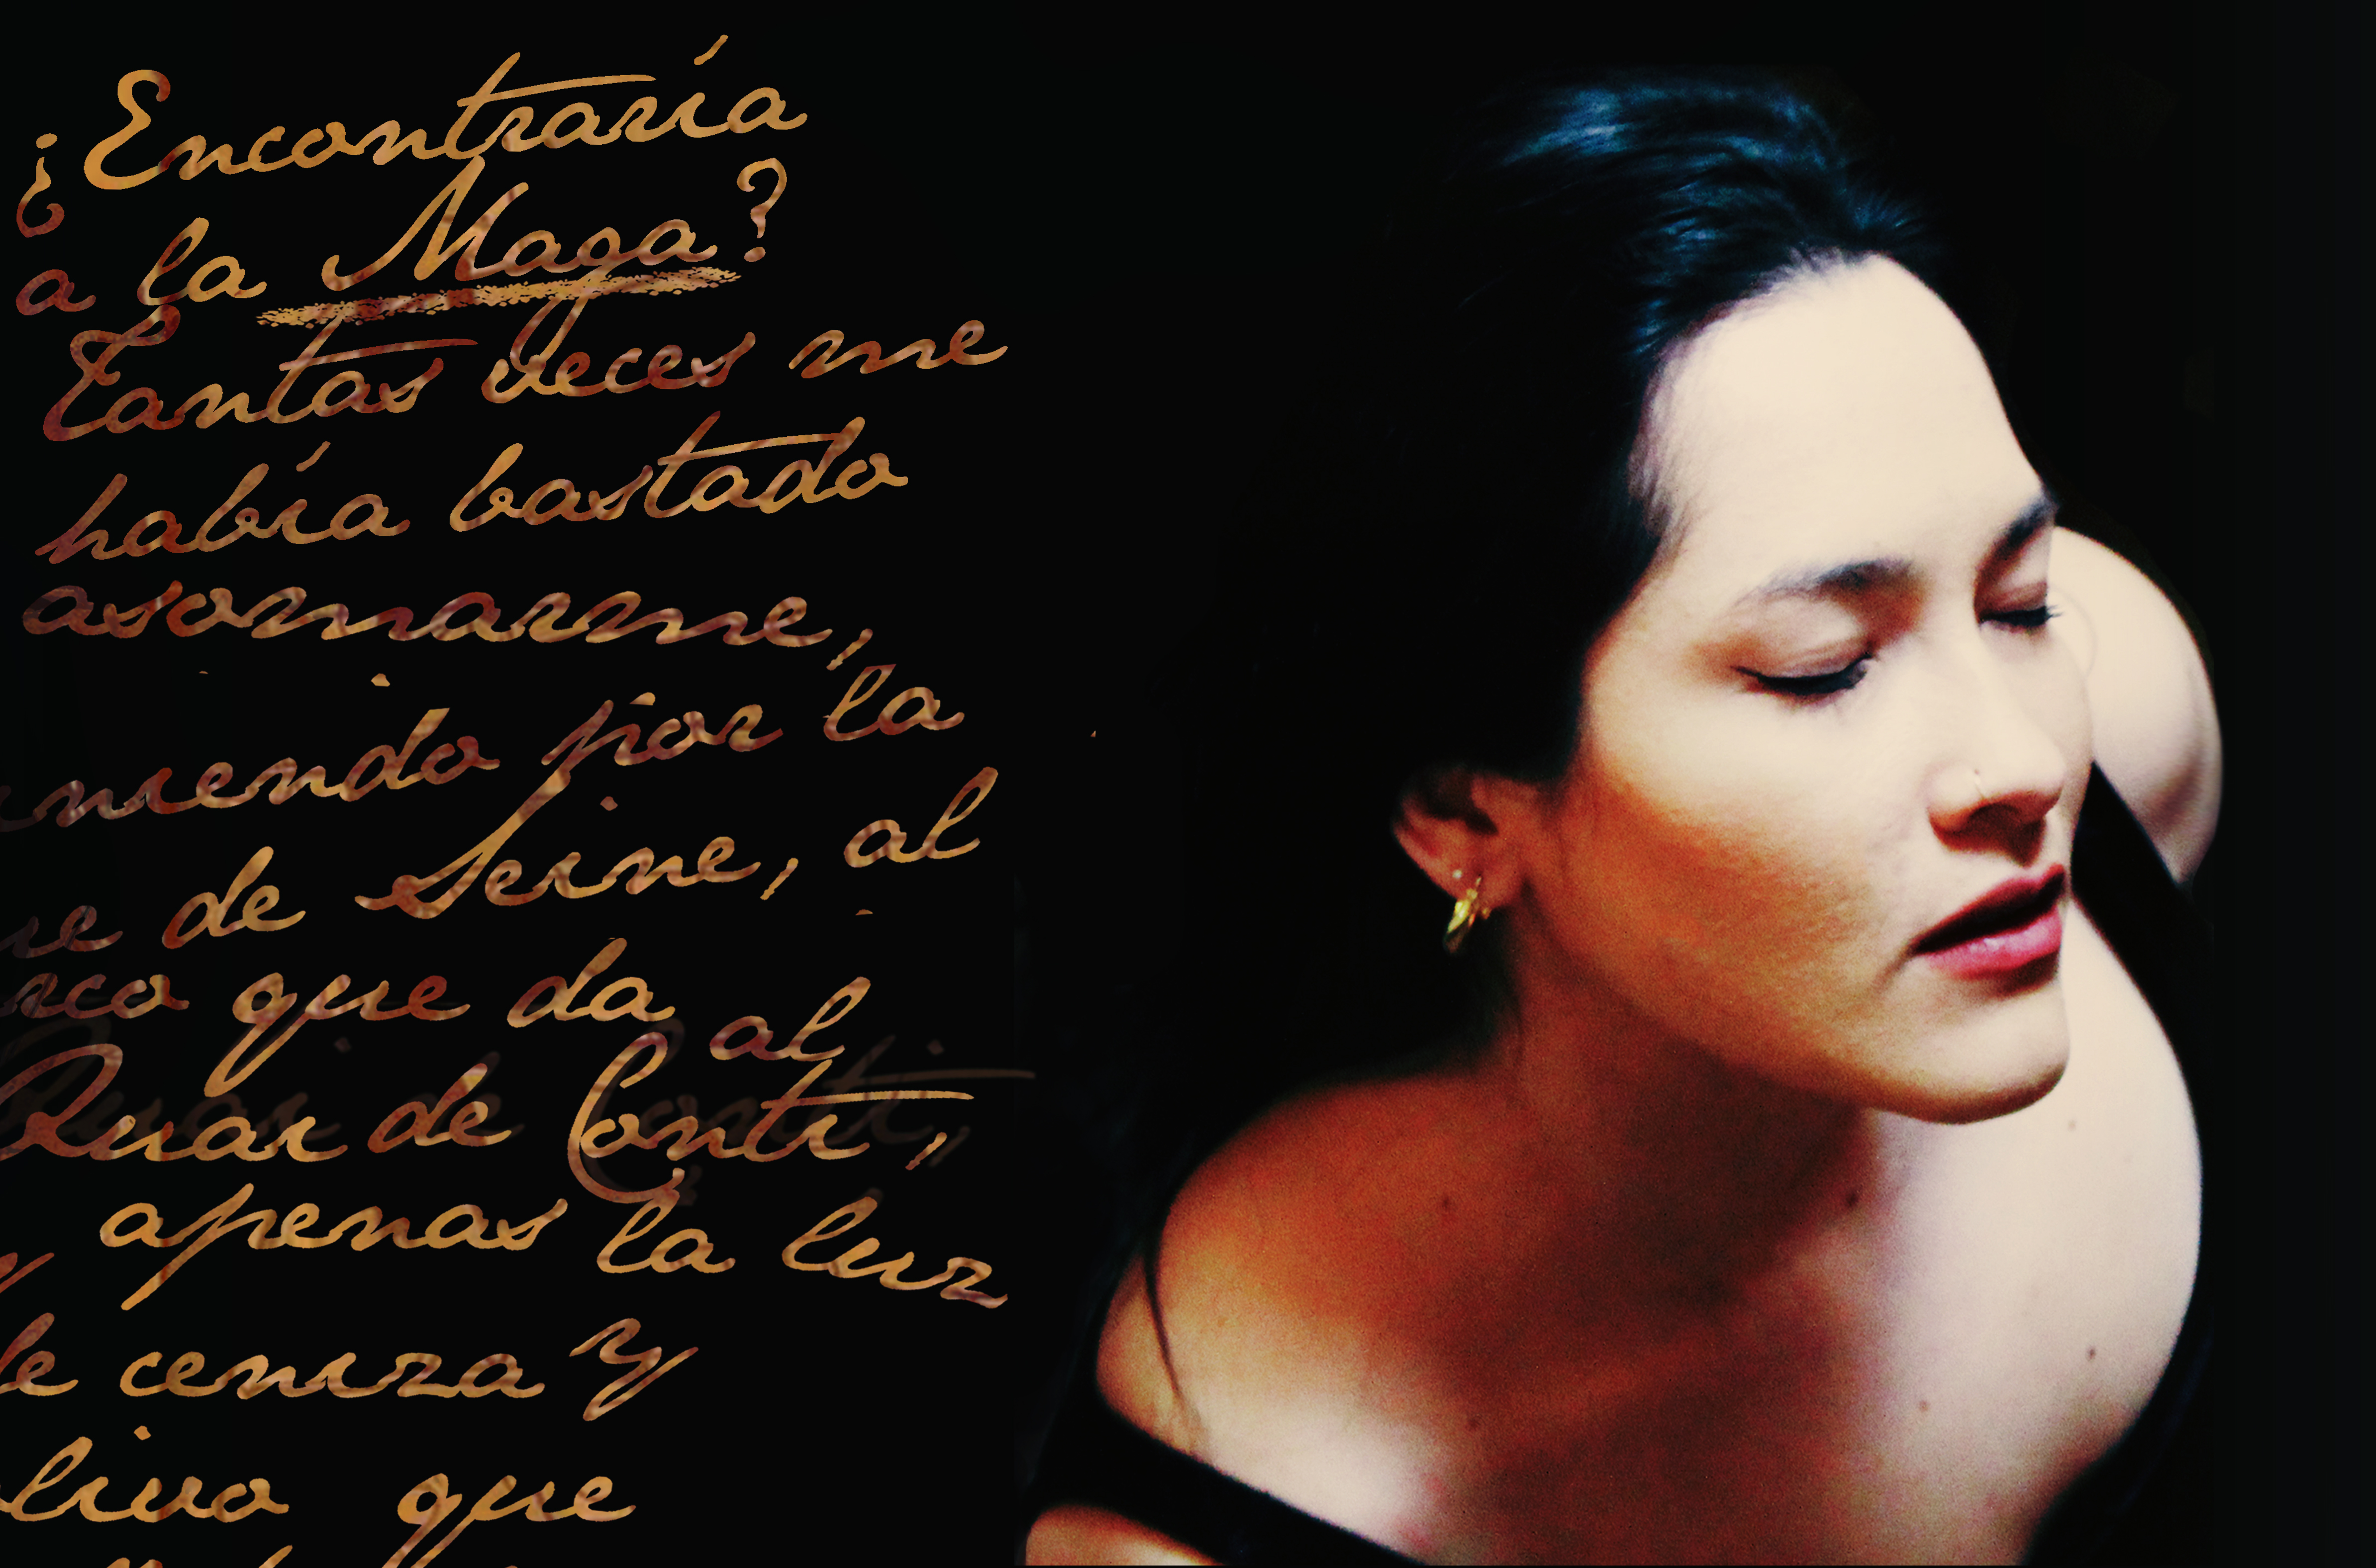 ¿Encontraría
a la Maga?
Tantas veces me
había bastado
asomarme,
niendo por la
ue de Seine, al
rco que da al
Quai de Conti,
y apenas la luz
de ceniza y
olivo que